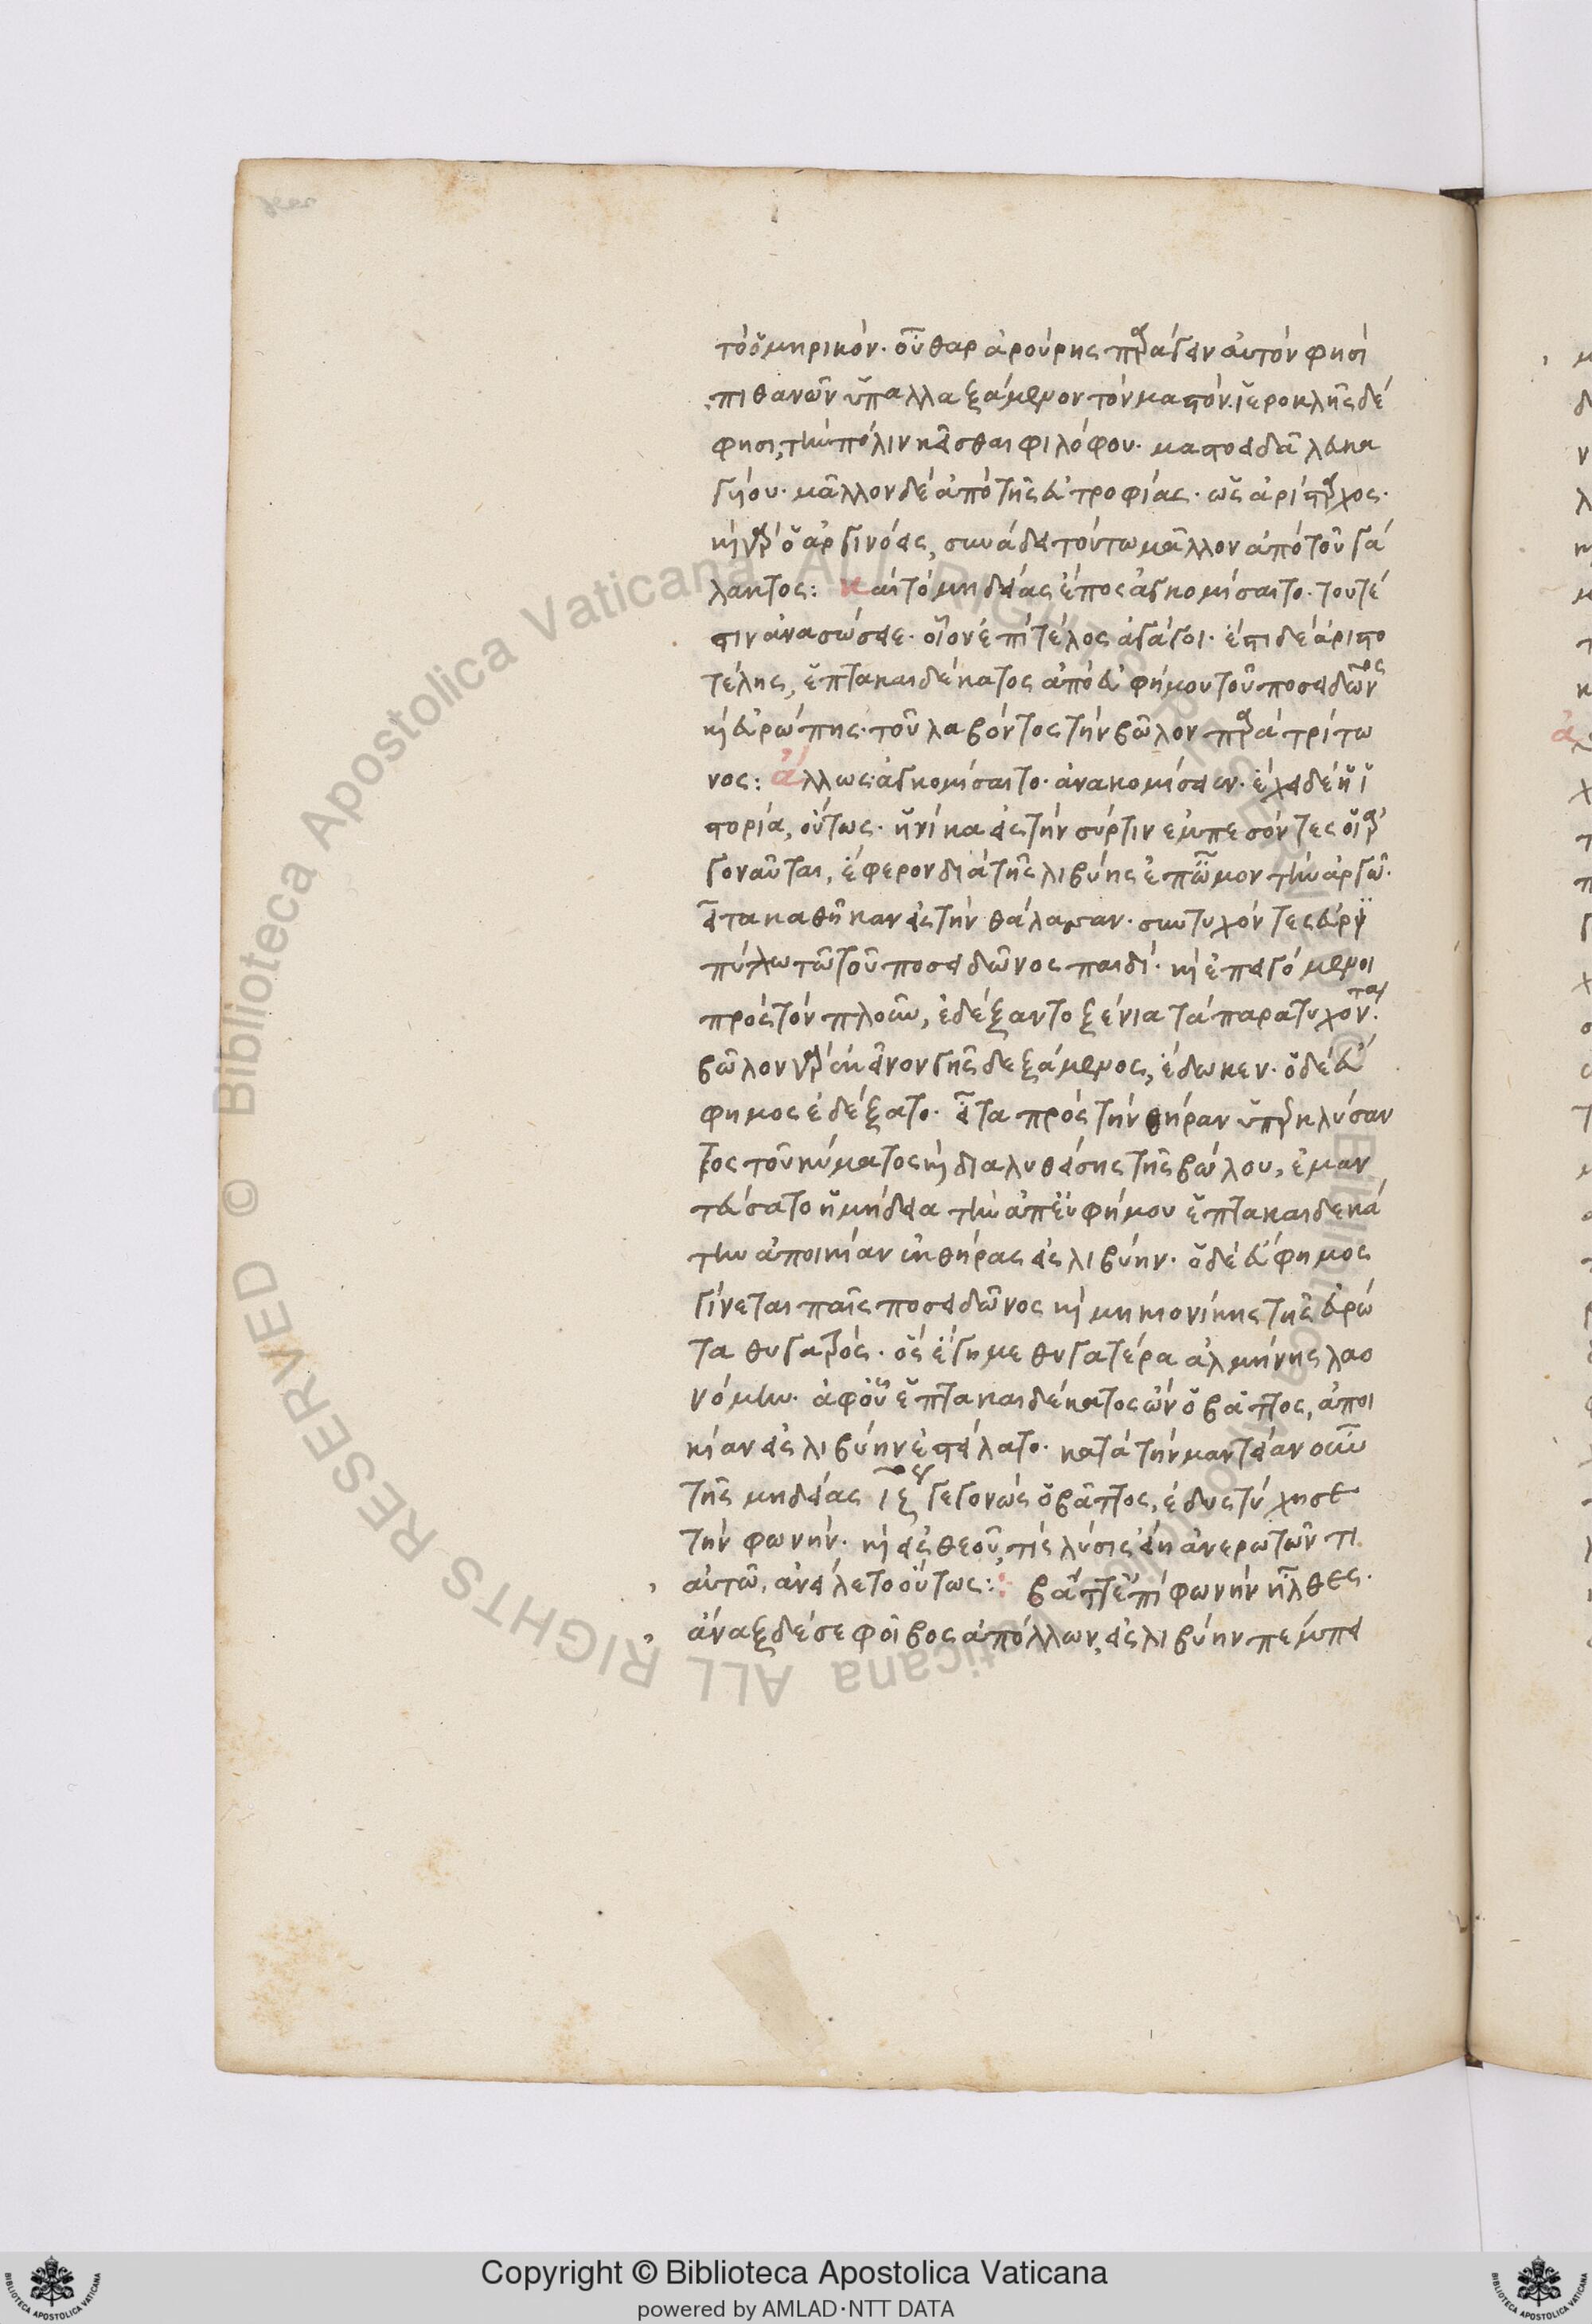 τὸ ὁμηρικόν· οὖθαρ ἀρούρης παράγειν αὐτόν φησι
πιθανῶν ὑπαλλαξάμενον τὸν μαστόν. ἱεροκλῆς δέ
φησι, τὴν πόλιν κεῖσθαι φιλόφου· μαστοειδεῖ λευκα
γείου· μᾶλλον δὲ ἀπὸ τῆς εὐτροφίας· ὡς ἀρίσταρχος·
καὶ γὰρ ὁ ἀργινόεις, συνάδει τούτω μᾶλλον ἀπὸ τοῦ γά
λακτος: καὶ τὸ μηδείας ἔπος ἀγκομίσαιτο· τουτέ
στιν ἀνασώσειε· οἷον ἐπὶ τέλος ἀγάγοι· ἔστι δὲ ἀριστο
τέλης, ἑπτακαιδέκατος ἀπὸ εὐφήμου τοῦ ποσειδῶνος
καὶ εὐρώπης· τοῦ λαβόντος τὴν βῶλον παρὰ τρίτω
νος: ἄλλως: ἀγκομίσαιτο· ἀνακομίσειεν· ἔχει δὲ ἡ ἱ
στορία, οὕτως· ἡνίκα εἰς τὴν σύρτιν εμπεσόντες οἱ ἀρ
γοναῦται, ἔφερον διὰ τῆς λιβύης ἐπώμον τὴν ἀργώ·
εἶτα καθῆκαν εἰς τὴν θάλασσαν· συντυχόντες εὐρυ
πύλω τῶ τοῦ ποσειδῶνος παιδί· καὶ ἐπειγόμενοι
πρὸς τὸν πλοῦν, ἐδέξαντο ξένια τὰ παρατυχόντα·
βῶλον γὰρ ἐκεῖνον γῆς δεξάμενος, ἔδωκεν· ὁ δὲ εὔ
φημος ἐδέξατο· εἶτα πρὸς τὴν θήραν ὑπερκλύσαν
τος τοῦ κύματος καὶ διαλυθείσης τῆς βώλου, ἐμαν
τεύσατο ἡ μήδεια τὴν ἀπ' εὐφήμου ἑπτακαιδεκά
την ἀποικίαν ἐκ θήρας εἰς λιβύην· ὁ δὲ εὔφημος
γίνεται παῖς ποσειδῶνος καὶ μηκιονίκης τῆς εὐρώ
τα θυγατρός· ὃς ἔγημε θυγατέρα ἀλκμήνης λαο
νόμην· ἀφ' οὗ ἑπτακαιδέκατος ὢν ὁ βάττος, ἀποι
κίαν εἰς λιβύην ἐστείλατο· κατὰ τὴν μαντείαν οὖν
τῆς μηδείας ιζ γεγονὼς ὁ βάττος, ἐδυστύχησε
τὴν φωνήν· καὶ εἰς θεοῦ, τίς λύσις εἴη ἀνερωτῶντι
αὐτῶ, ἀνείλετο οὕτως: βάττ' ἐπὶ φωνὴν ἦλθες·
ἄναξ δέ σε φοῖβος ἀπόλλων, εἰς λιβύην πέμπει